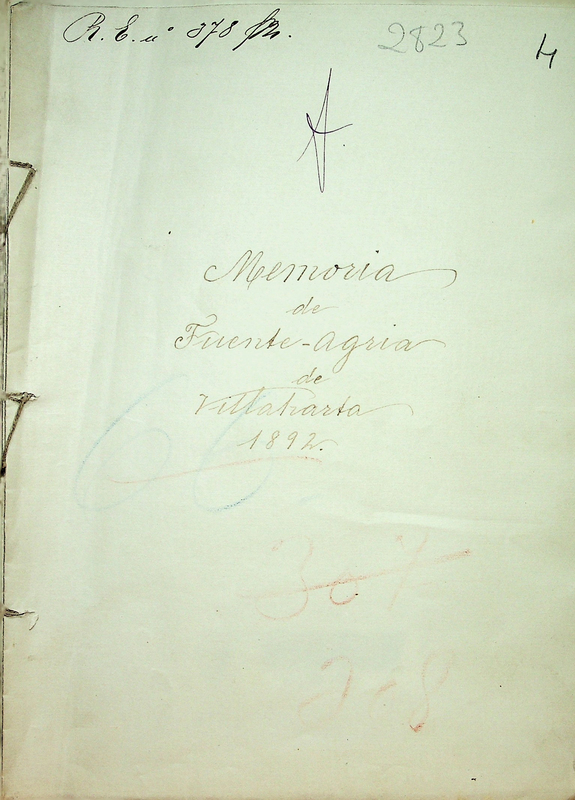 R. E. nº 378
2823
4
Memoria
de
Fuente-Agria
de
Villaharta
1892.
66
307